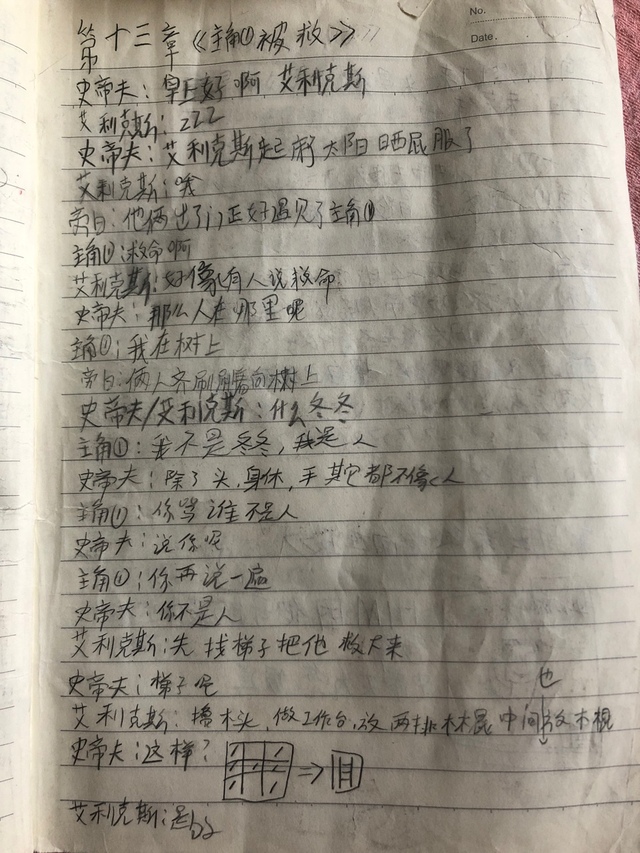 No.
Date.
第十三章《主角①被救》
史帝夫：早上好啊 艾利克斯
艾利克斯：zzz
史帝夫：艾利克斯起床 太阳晒屁服了
艾利克斯：哦
旁白：他俩出了门正好遇见了主角①
主角①：救命啊
艾利克斯：好像有人说救命
史帝夫：那么人在那里呢
主角①：我在树上
旁白：俩人齐刷刷看向树上
史帝夫/艾利克斯：什么冬冬
主角①：我不是冬冬，我是人
史帝夫：除了头，身休，手其它都不像人
主角①：你骂谁不是人
史帝夫：说你呢
主角①：你再说一遍
史帝夫：你不是人
艾利克斯：先找梯子把他救下来
史帝夫：梯子呢
艾利克斯：撸木头，做工作台，放两排木棍中间也放木棍
史帝夫：这样？
艾利克斯：是的